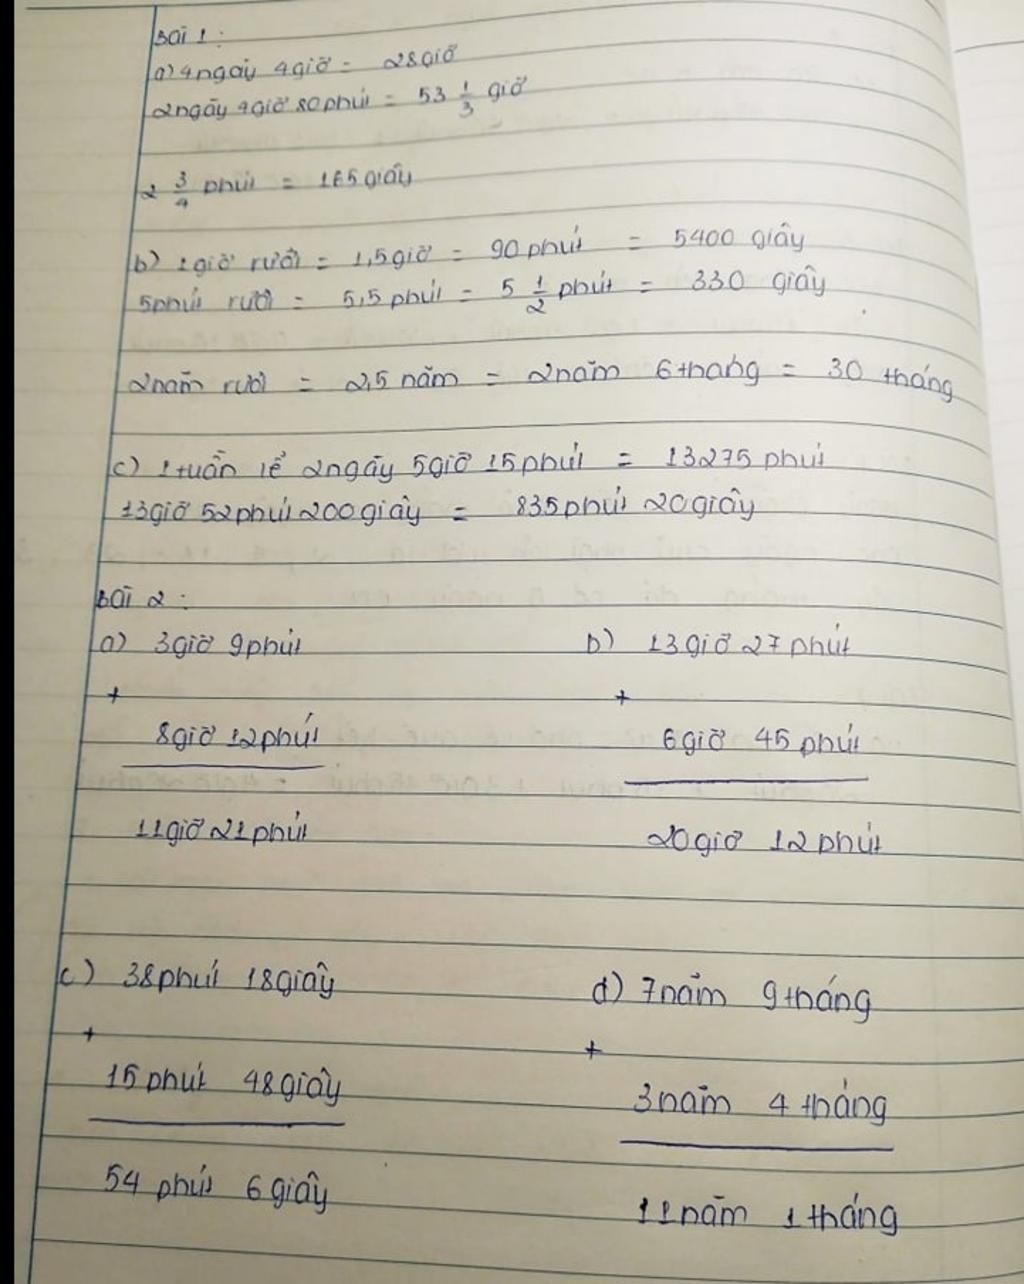 Bài 1:
a) 4ngày 4giờ = 28giờ
2ngày 4giờ 80phút = 53 1/3 giờ
2 3/4 phút = 165giây
b) 1giờ rưỡi = 1,5giờ = 90phút = 5400 giây
5phút rưỡi = 5,5phút = 5 1/2 phút = 330 giây
2năm rưỡi = 2,5 năm = 2năm 6tháng = 30 tháng
c) 1tuần lể 2ngày 5giờ 15phút = 13275phút
13giờ 52phút 200giây = 835phút 20giây
Bài 2:
a) 3giờ 9phút b) 13giờ 27phút
+ +
8giờ 12phút 6giờ 45 phút
11giờ 21phút 20giờ 12phút
c) 38phút 18giây d) 7năm 9tháng
+ +
15phút 48giây 3năm 4 tháng
54 phút 6giây 11năm 1tháng